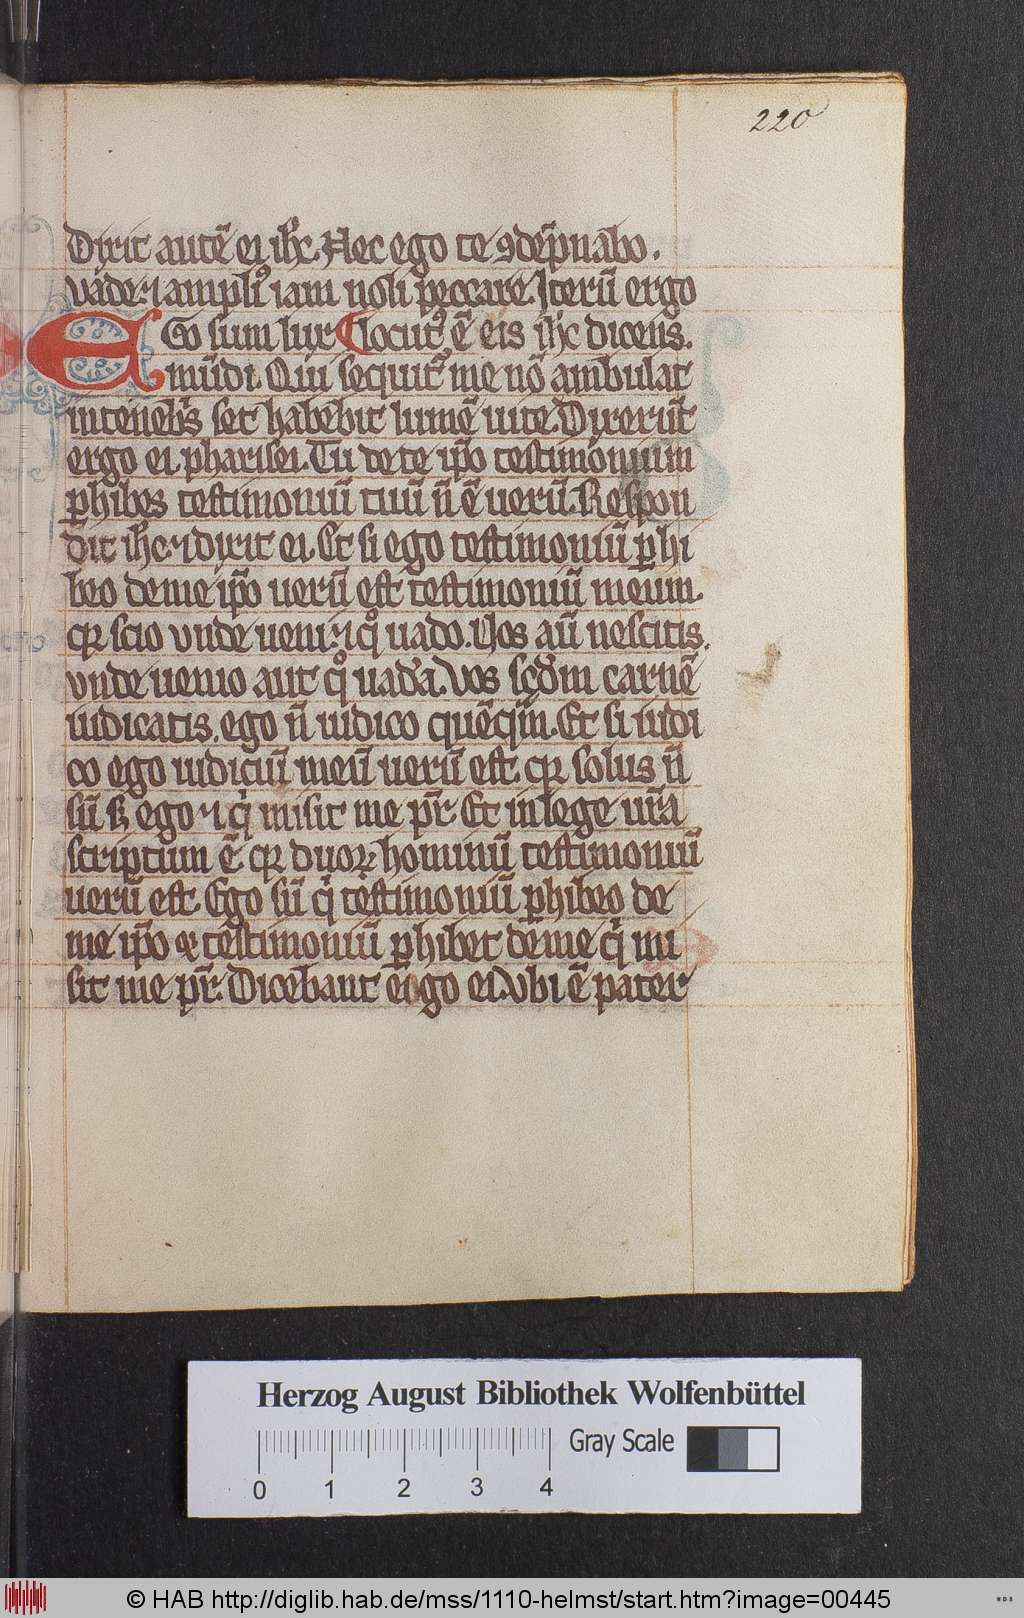 220
Dixit autē ei ihc. Nec ego te ꝯdēpnabo.
vade ⁊ ampliꝰ iam noli peccare. Iterū ergo
EGo sum lux locutꝰ ē eis ihc dicens.
mūdi. Qui sequit᷑ me nō ambulat
intenebͥs set habebit lumē uite. Dixerūt
ergo ei pharisei. Tu dete ip̄o testimonium
ꝑhibes testimoniū tuū n̄ ē uerū. Respon
dit ihc ⁊ dixit ei. Et si ego testimoniū ꝑhi
beo deme ip̄o uerū est testimoniū meum.
qꝛ scio vnde ueni ⁊ qͦ uado. Vos aū nescitis
vnde uenio aut qͦ uadā. Vos sc̄dm carnē
iudicatis. ego n̄ iudico quēqm̄. Et si iudi
co ego iudiciū meū uerū est. qꝛ solus n̄
sū sꝫ ego ⁊ qͥ misit me pr̄. Et inlege ur̄a
scriptum ē qꝛ duoꝝ hominū testimoniū
uerū est. Ego sū qͥ testimoniū ꝑhibeo de
me ip̄o et testimoniū ꝑhibet deme qͥ mi
sit me pr̄. Dicebant ergo ei. Vbi ē pater
Herzog August Bibliothek Wolfenbüttel
Gray Scale
0 1 2 3 4
© HAB http://diglib.hab.de/mss/1110-helmst/start.htm?image=00445